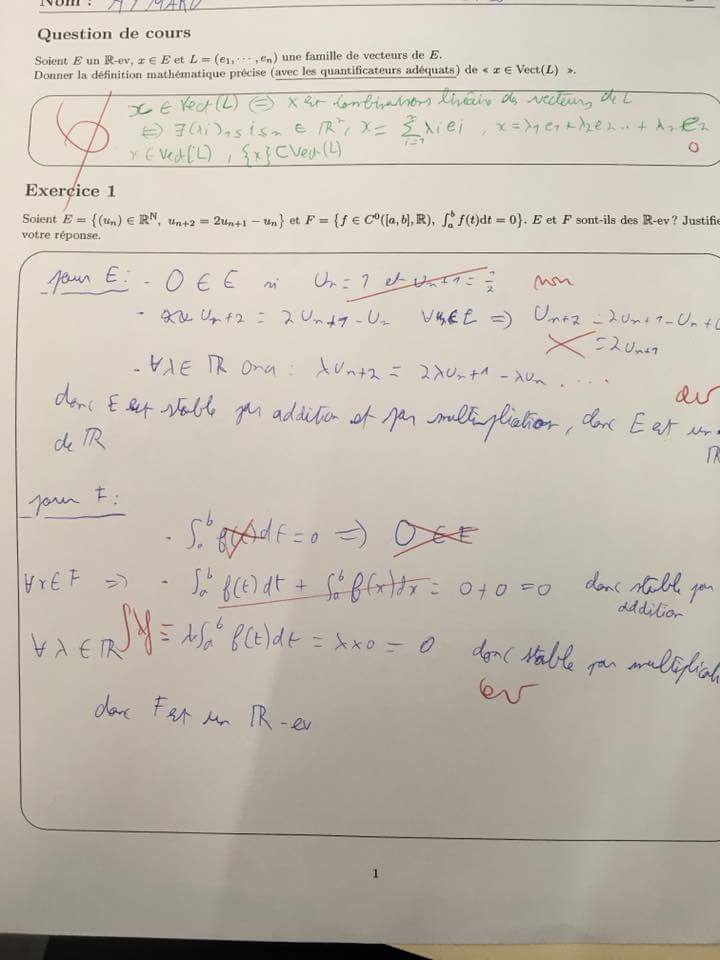 Nom :
Question de cours
Soient E un ℝ-ev, x ∈ E et L = (e₁, ⋯ , eₙ) une famille de vecteurs de E.
Donner la définition mathématique précise (avec les quantificateurs adéquats) de « x ∈ Vect(L) ».
x ∈ Vect(L) ⟺ x est combinaisons linéaire des vecteurs de L
⟺ ∃(λi)1≤i≤n ∈ ℝ², x = Σ λi ei , x = λ1 e1 + λ2 e2 .. + λn en
x ∈ Vect(L) , {x} ⊂ Vect(L)
0
Exercice 1
Soient E = {(uₙ) ∈ ℝ^ℕ, uₙ₊₂ = 2uₙ₊₁ − uₙ} et F = {f ∈ C⁰([a, b], ℝ), ∫ₐᵇ f(t)dt = 0}. E et F sont-ils des ℝ-ev ? Justifie
votre réponse.
pour E : - 0 ∈ E si Un = 1 et Un+1 = 1/2 non
- Un+2 = 2Un+1 - Un ⟹ Un+2 = 2Un+1 - Un +
= 2Un+1
- ∀λ ∈ ℝ On a : λUn+2 = 2λUn+1 - λUn . ...
donc E est stable par addition et par multipliation, donc E est un ev
de ℝ
pour F :
- ∫ₐᵇ f(t) dt = 0 ⟹ 0 ∈ E
∀x∈F ⟹ - ∫ₐᵇ f(t) dt + ∫ₐᵇ f(x) dx = 0 + 0 = 0 donc stable par
addition
∀ λ ∈ ℝ = λ∫ₐᵇ f(t) dt = λ × 0 = 0 donc stable par multiplicat
ev
donc F est un ℝ-ev
1